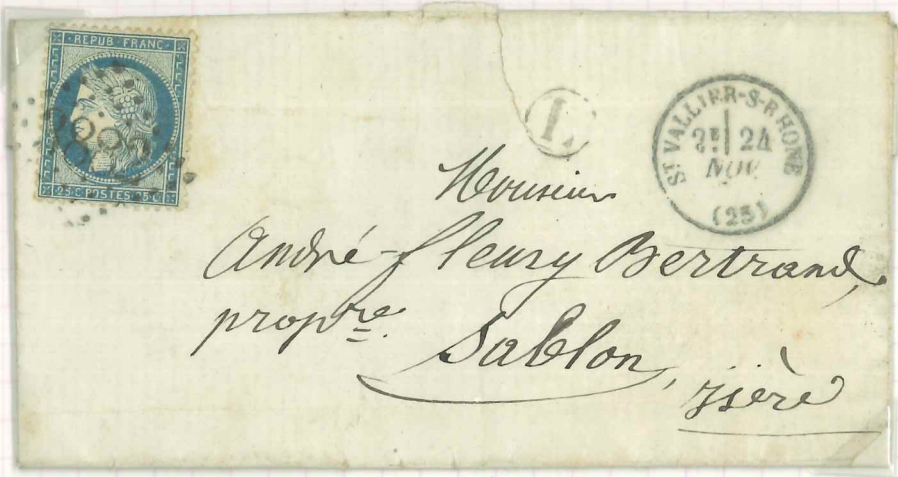 REPUB·FRANC
25 c POSTES 25 c
L
ST VALLIER-S-RHONE
24
NOV
(25)
Monsieur
André-fleury Bertrand,
propre.
Sablon,
isère